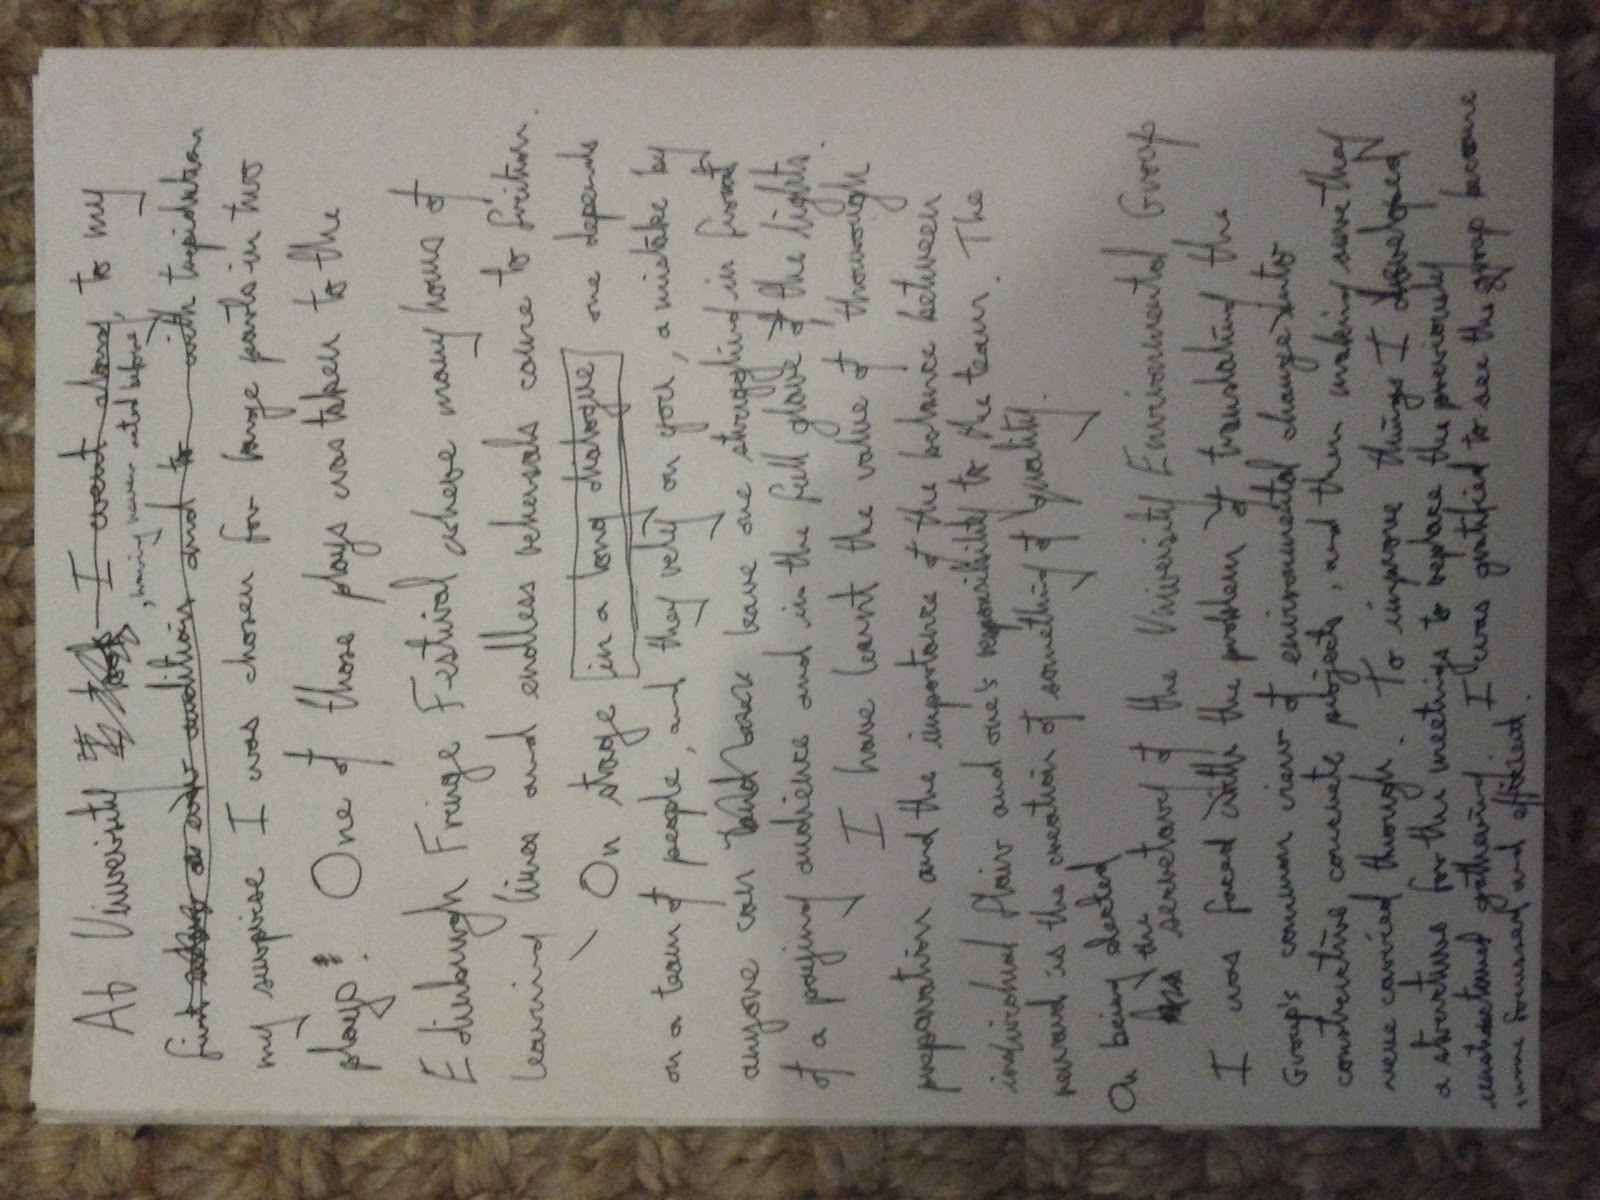 At University I went along, to my
, having never acted before,
first audition and to with trepidation
my surprise I was chosen for large parts in two
plays. One of those plays was taken to the
Edinburgh Fringe Festival where many hours of
learning lines and endless rehersals came to fruition.
On stage in a long dialogue one depends
on a team of people, and they rely on you, a mistake by
anyone can leave one struggling in front
of a paying audience and in the full glare of the lights.
I have learnt the value of thorough
preparation and the importance of the balance between
individual flair and one's responsibility to the team. The
reward is the creation of something of quality.
On being elected
the secretary of the University Environmental Group
I was faced with the problem of translating the
Group's common view of environmental change into
constructive concrete projects, and then making sure they
were carried through. To improve things I developed
a structure for the meetings to replace the previously
gathering. I was gratified to see the group become
more focused and efficient.